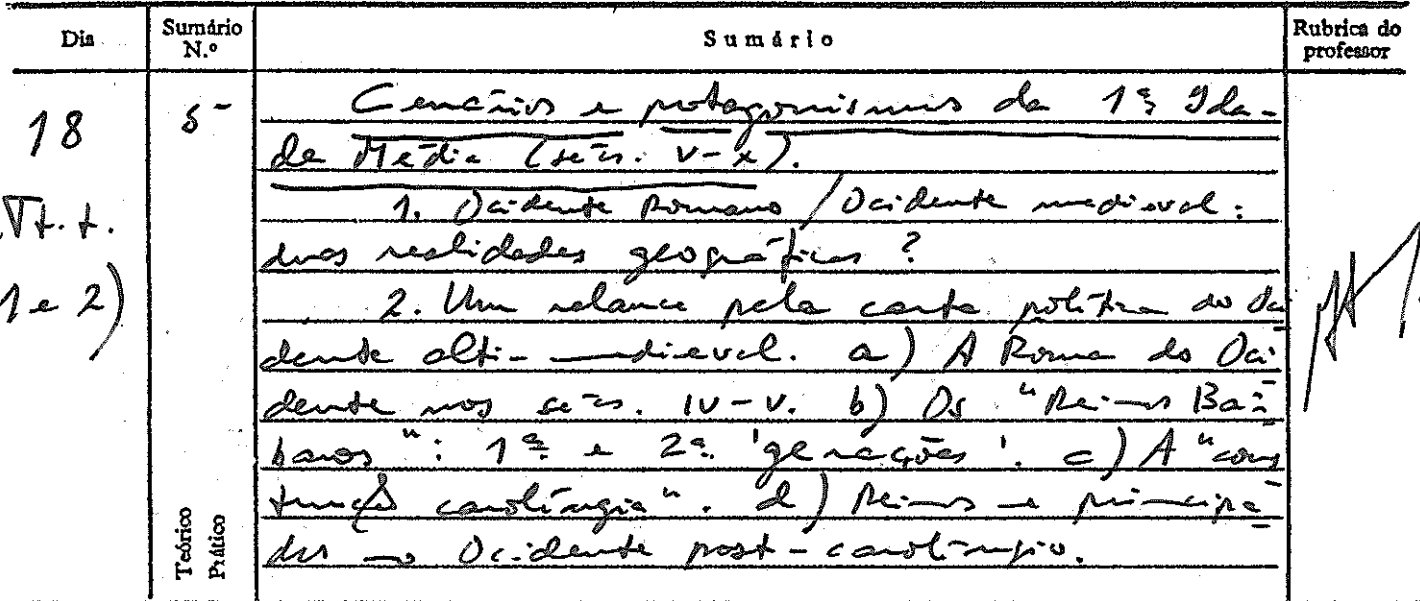 Dia
Sumário
N.º
Sumário
Rubrica do
professor
18
5
Cenários e protagonismos da 1ª Ida-
de Média (sécs. V-X).
1. Ocidente Romano / Ocidente medieval:
duas realidades geográficas?
T. t.
1 e 2)
2. Um relance pela carta política do Oci
dente alti-medieval. a) A Roma do Oci-
dente nos sécs. IV-V. b) Os "Reinos Bár-
baros": 1ª e 2ª 'gerações'. c) A "cons-
trução carolíngia". d) Reinos e principa-
dos no Ocidente post-carolíngio.
Teórico
Prático